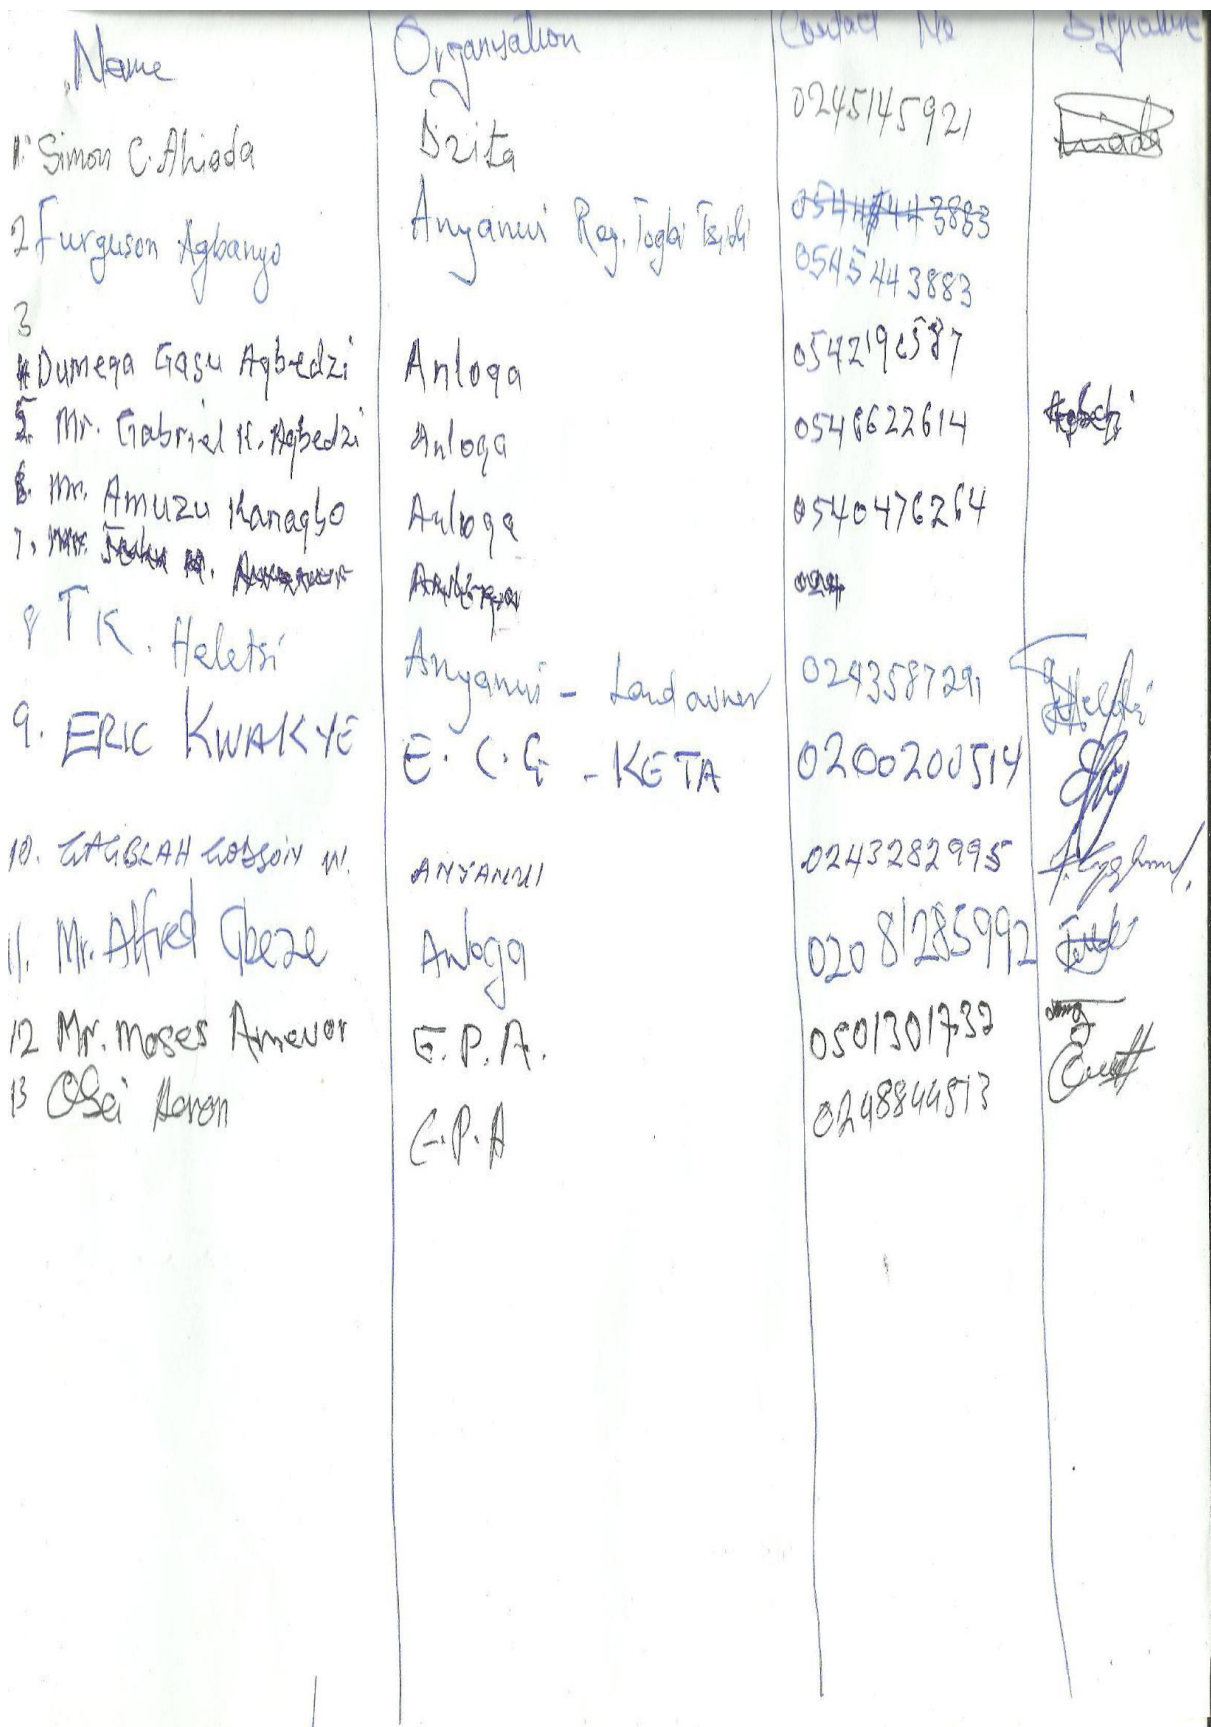 Name Organisation Contact No Signature
1. Simon C. Ahiada Dzita 0245145921
2 Furguson Agbanyo Anyanui Reg. Togbi 0544443883
0545443883
3
4 Dumega Gasu Agbedzi Anloga
5. Mr. Gabriel K. Agbedzi Anloga 0548622614 Agbedzi
6. Mr. Amuzu Kanagbo Anloga 0540476264
7. Mr. Anloga 024
8 T K. Heletsi Anyanui - Landowner 0243587291
9. ERIC KWAKYE E. C. G - KETA 0200200514
10. GAGBLAH GODSON W. ANYANUI 0243282995
11. Mr. Alfred Gbeze Anloga 02081285992
12 Mr. Moses Amevor E.P.A. 0501301737
13 Osei Aaron E.P.A 0248844513